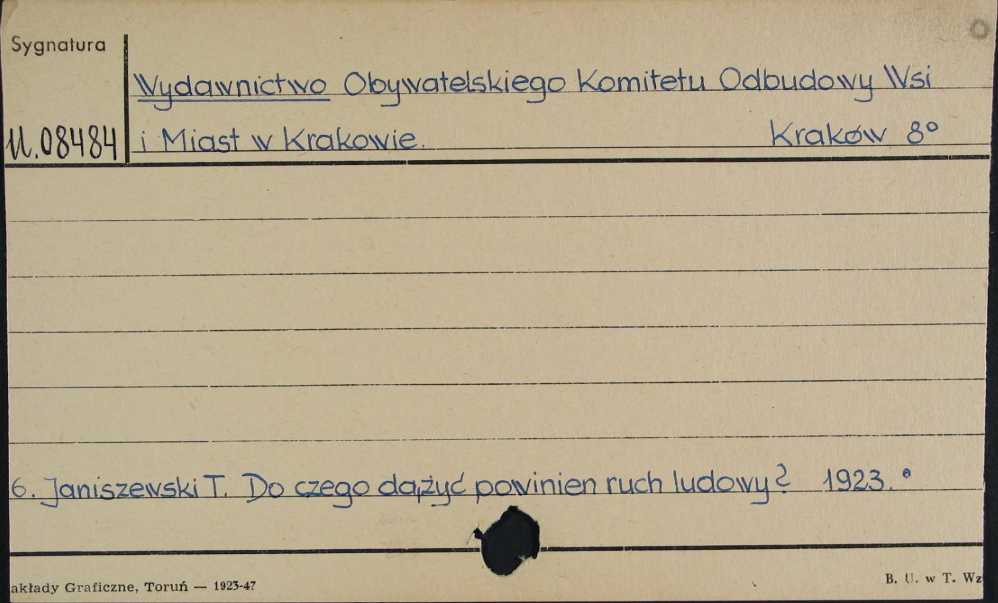 Sygnatura
Wydawnictwo Obywatelskiego Komitetu Odbudowy Wsi
U.08484 i Miast w Krakowie. Kraków 8°
6. Janiszewski T. Do czego dążyć powinien ruch ludowy? 1923.
akłady Graficzne, Toruń — 1923-47
B. U. w T. Wz